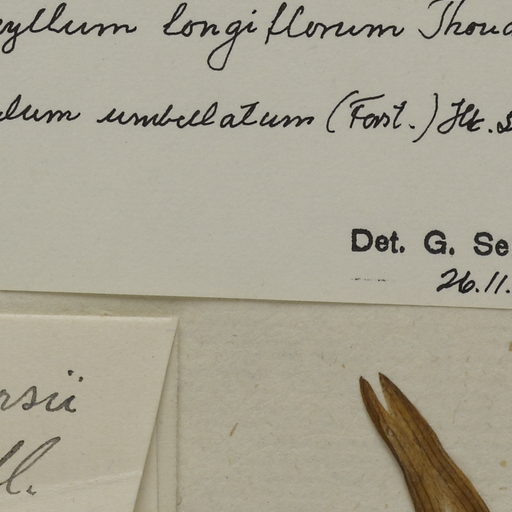 yllum longiflorum Thou
lum umbellatum (Forst.) Ht. S
Det. G. Se
26.11.
rsii
ll.